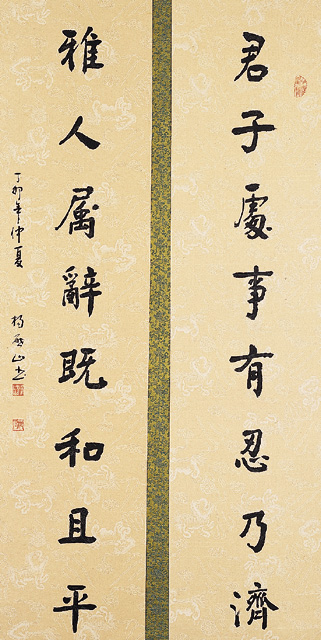 君子處事有忍乃濟
雅人属辭既和且平
丁卯年仲夏
楊啟山书